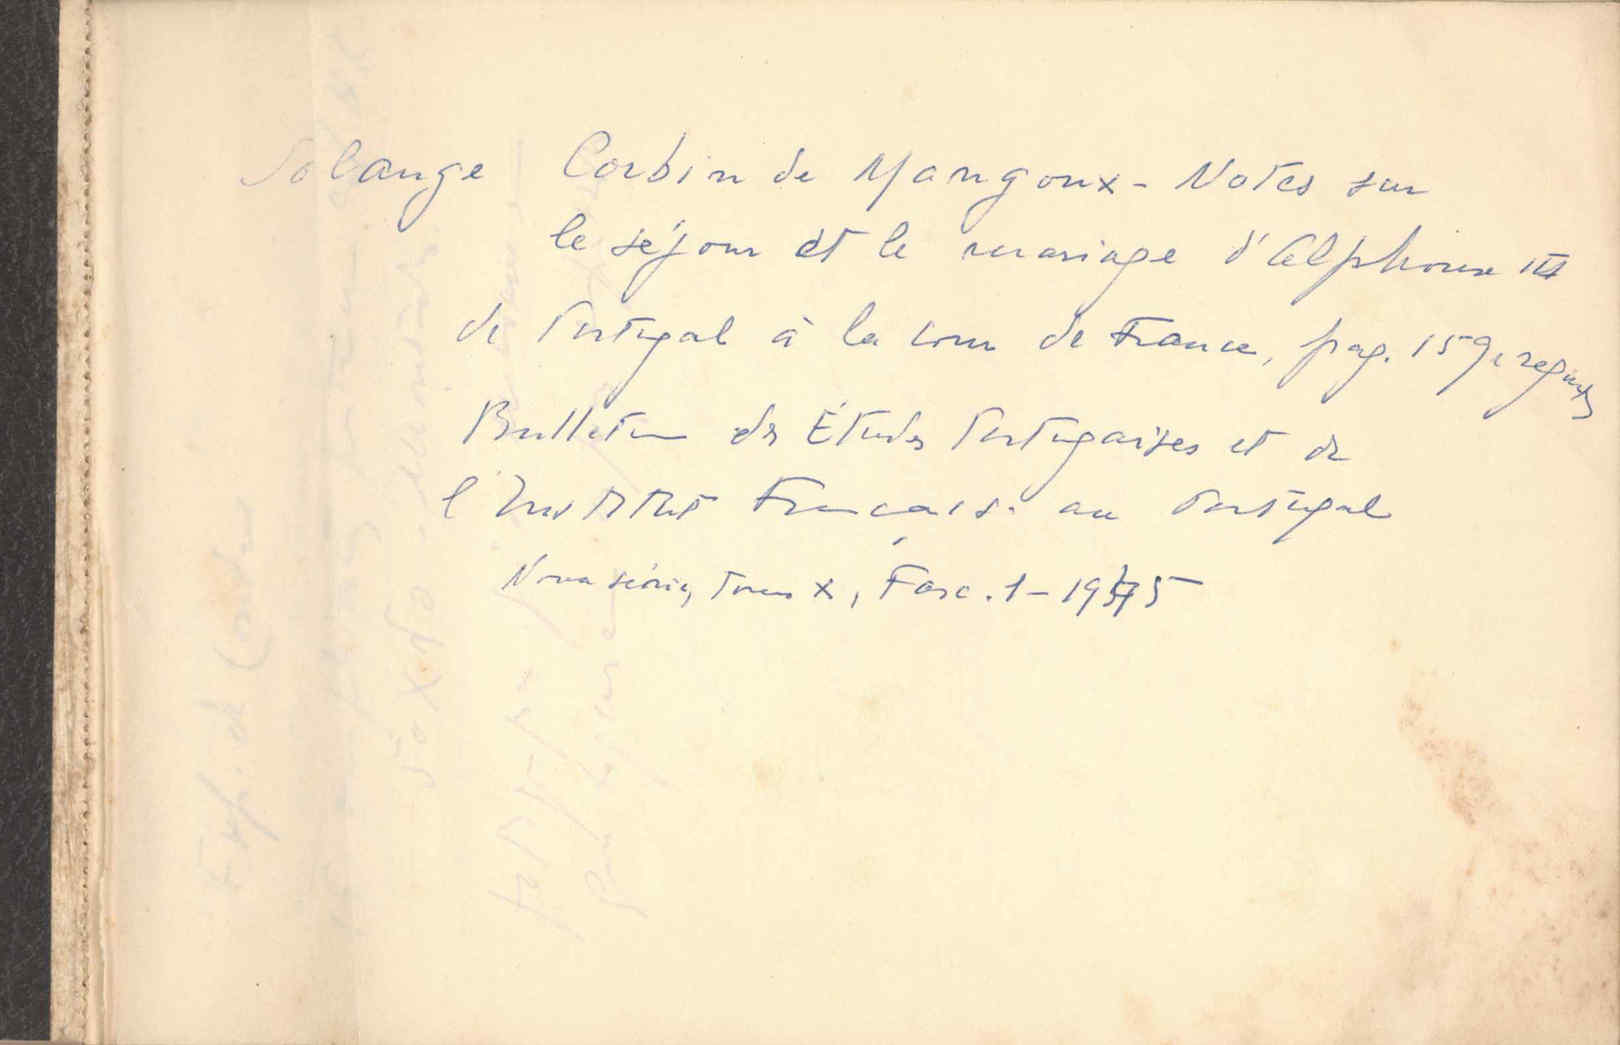 Solange Corbin de Mangoux - Notes sur
le séjour et le mariage d'Alphonse III
de Portugal à la cour de France, pag. 159 e seguintes
Bulletin des Études Portugaises et de
l'Institut Français au Portugal
Nova série, Tome X, Fasc. 1 - 1945